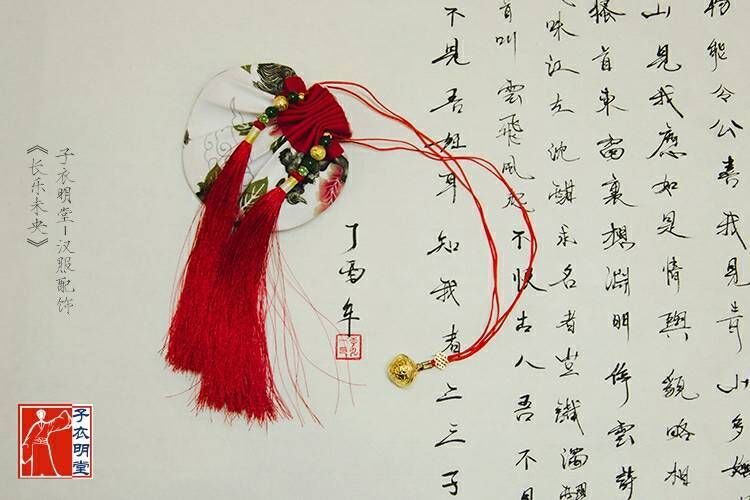 物能令公喜我見青山多嫵
山見我應如是情與貌略相
搔首東窗裏想淵明停雲詩
味江左沈酣求名者豈識濁醪
首叫雲飛風起不恨古人吾不見
不見吾狂耳知我者二三子
丁酉年
子衣明堂—汉服配饰
《长乐未央》
子衣明堂